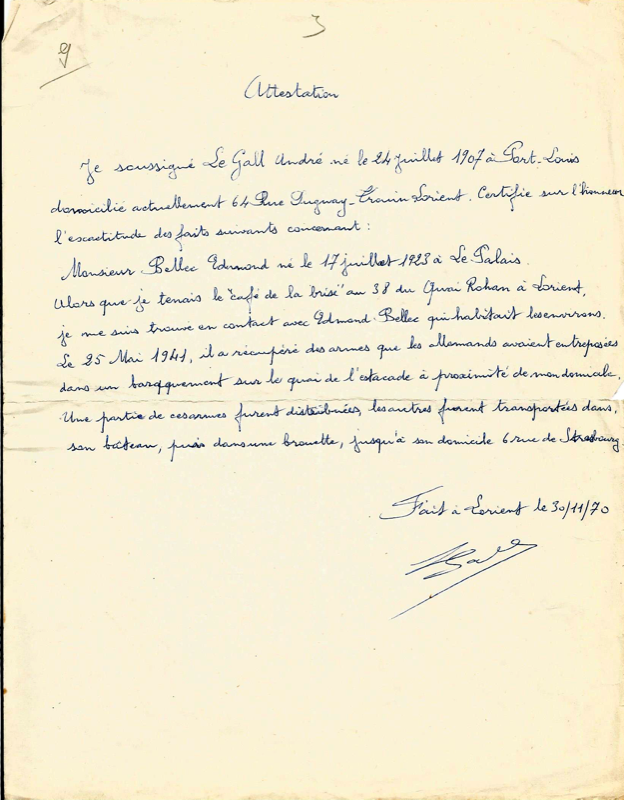 9
3
Attestation
Je soussigné Le Gall André né le 24 Juillet 1907 à Port-Louis
domicilié actuellement 64 Rue Duguay-Trouin Lorient. Certifie sur l'honneur
l'escactitude des faits suivants concenant :
Monsieur Bellec Edmond né le 17 juillet 1923 à Le Palais.
Alors que je tenais le "café de la brise" au 38 du Quai Rohan à Lorient,
je me suis trouvé en contact avec Edmond Bellec qui habitait les environs.
Le 25 Mai 1941, il a récupéré des armes que les allemands avaient entreposées
dans un barquement sur le quai de l'estacade à proximité de mon domicile.
Une partie de ces armes furent distribuées, les autres furent transportées dans,
son bâteau, puis dans une brouette, jusqu'à son domicile 6 rue de Strasbourg.
Fait à Lorient le 30/11/70